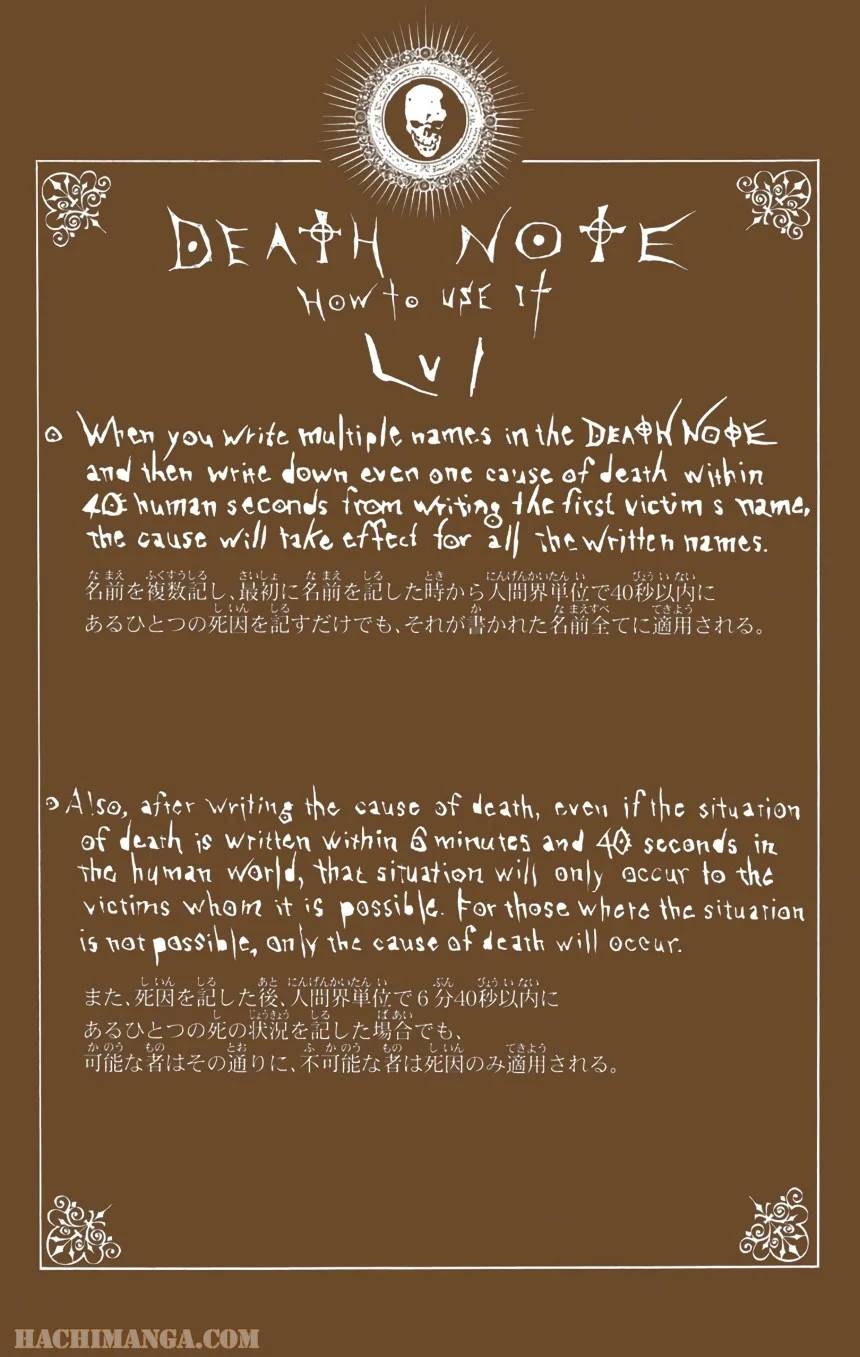 DEATH NOTE
HOW to USE It
LVI
When you write multiple names in the DEATH NOTE
and then write down even one cause of death within
40 human seconds from writing the first victim s name,
the cause will take effect for all the written names.
名前を複数記し、最初に名前を記した時から人間界単位で40秒以内に
あるひとつの死因を記すだけでも、それが書かれた名前全てに適用される。
Also, after writing the cause of death, even if the situation
of death is written within 6 minutes and 40 seconds in
the human world, that situation will only occur to the
victims whom it is possible. For those where the situation
is not possible, only the cause of death will occur.
また、死因を記した後、人間界単位で6分40秒以内に
あるひとつの死の状況を記した場合でも、
可能な者はその通りに、不可能な者は死因のみ適用される。
HACHIMANGA.COM